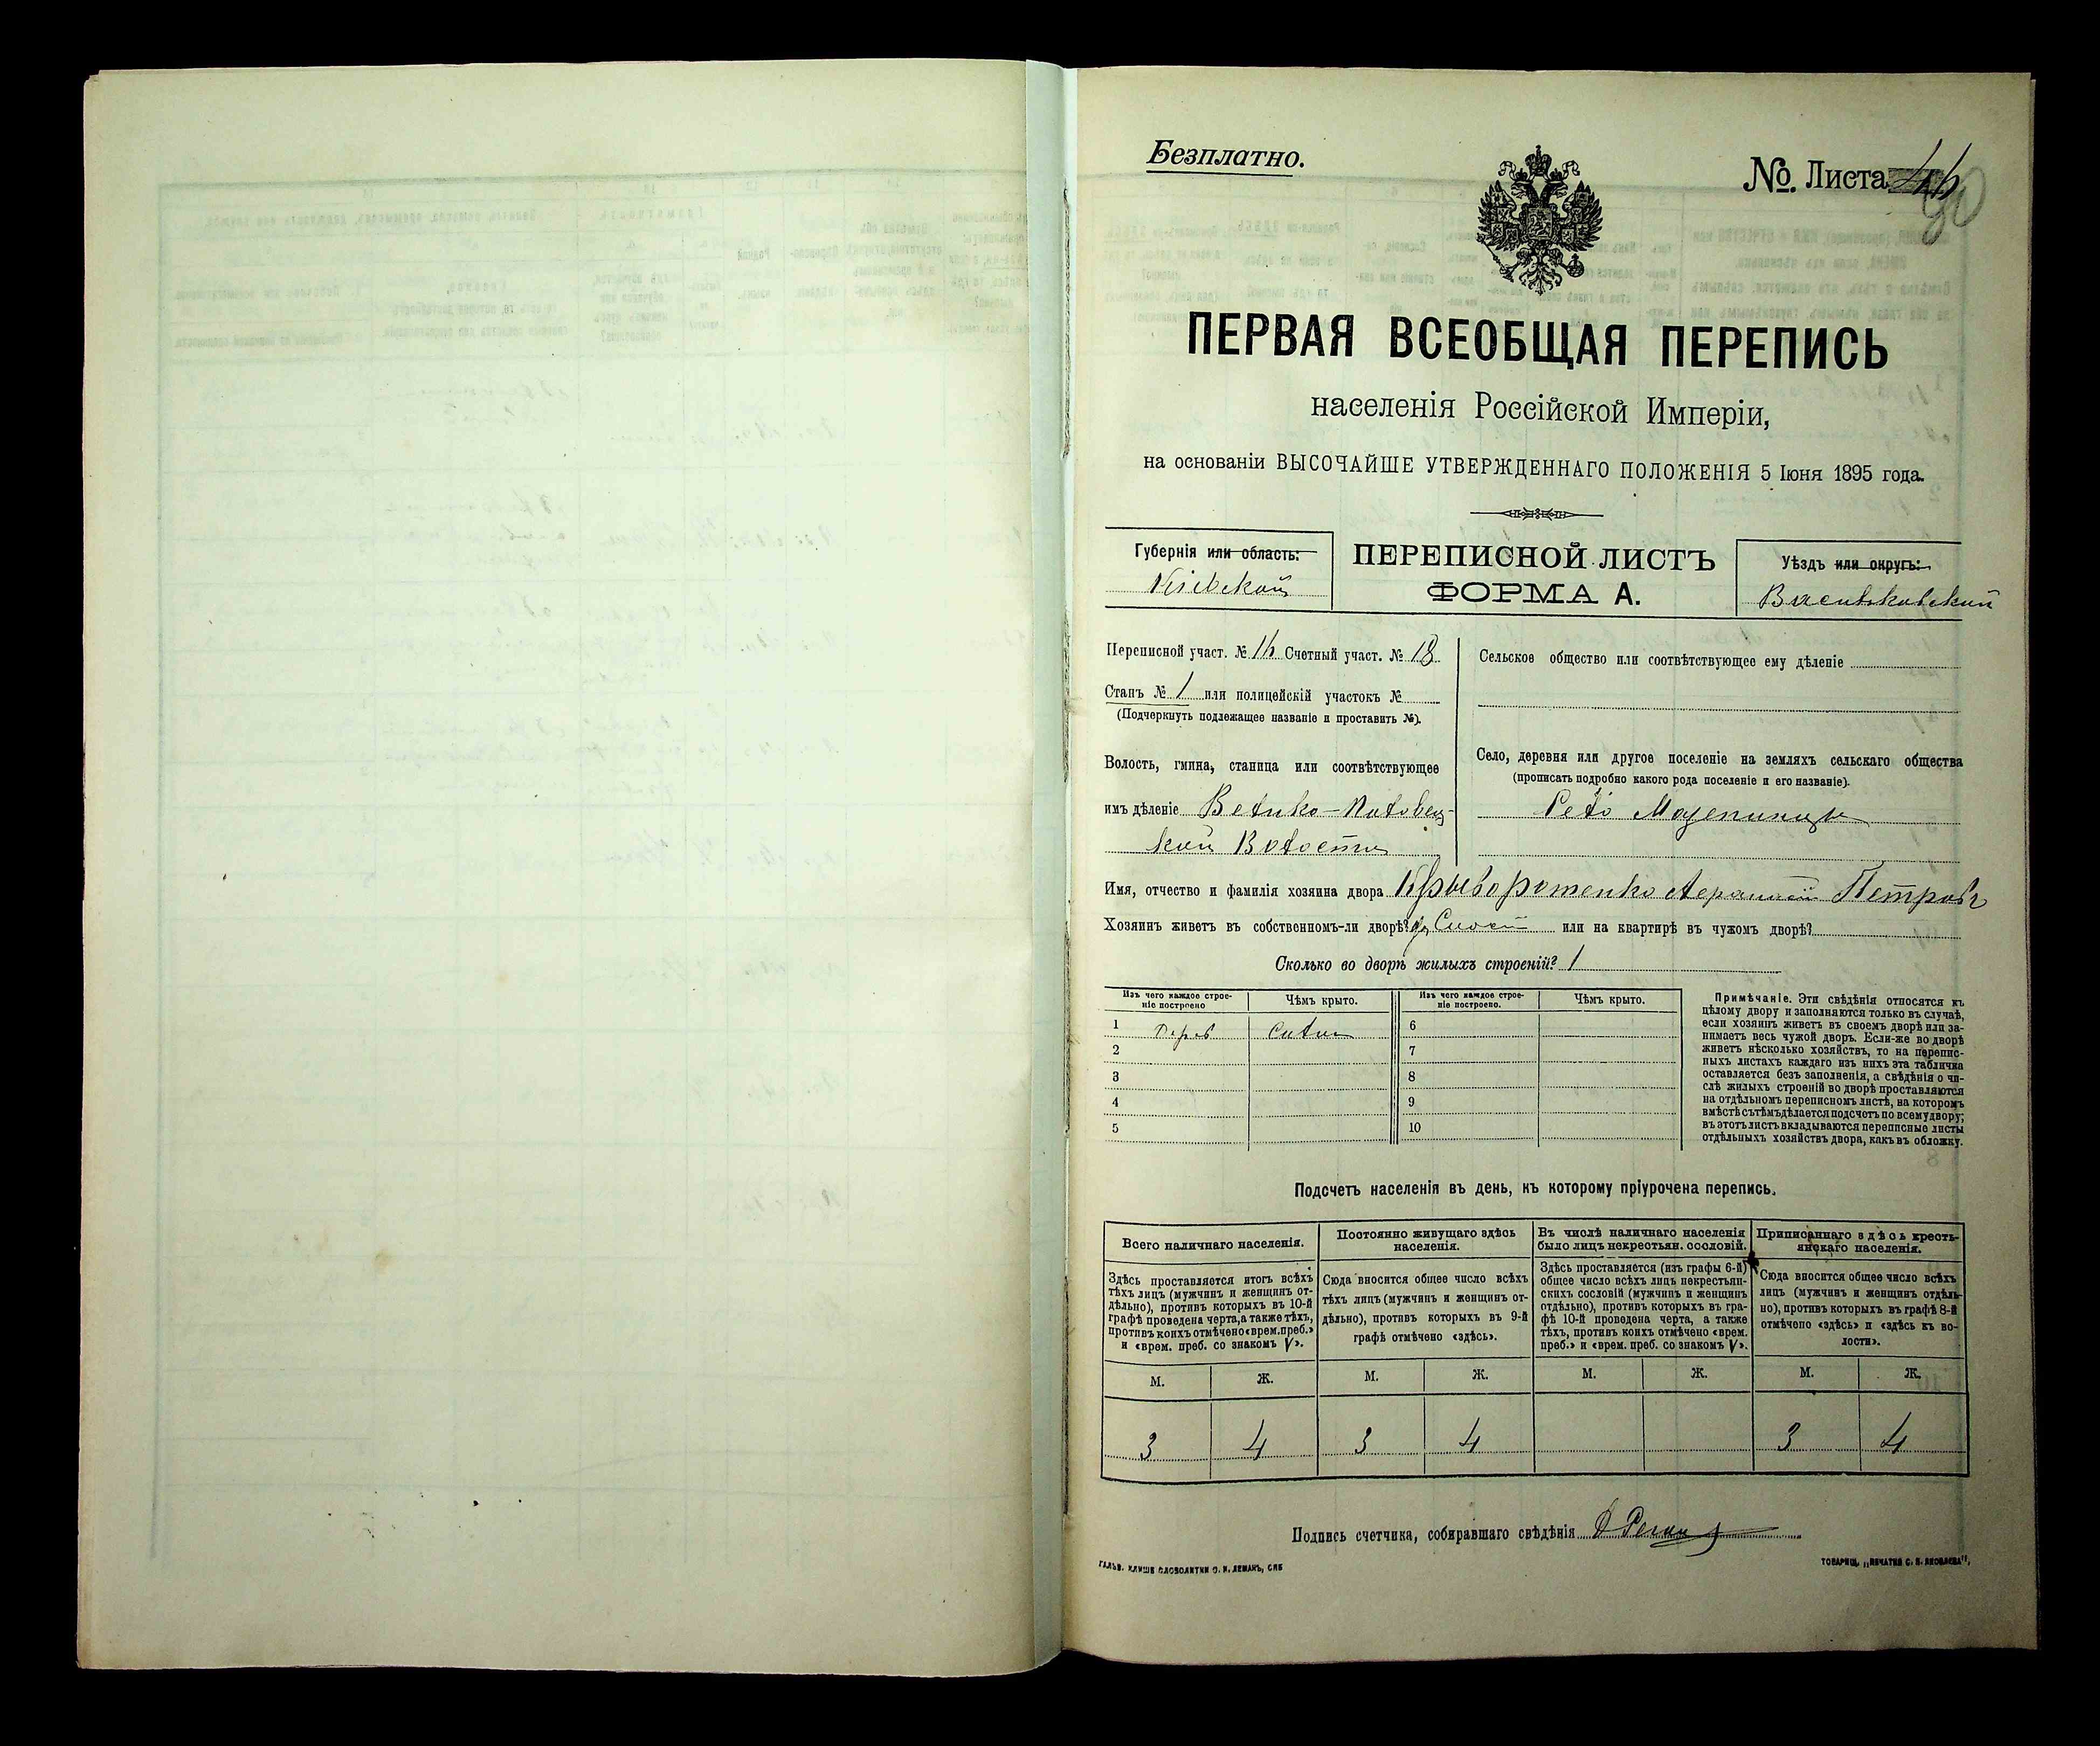 Безплатно.
№ Листа 46
80
ПЕРВАЯ ВСЕОБЩАЯ ПЕРЕПИСЬ
населенія Россійской Имперіи,
на основаніи ВЫСОЧАЙШЕ УТВЕРЖДЕННАГО ПОЛОЖЕНІЯ 5 Іюня 1895 года.
Губернія или область:
Кіевской
ПЕРЕПИСНОЙ ЛИСТЪ
ФОРМА А.
Уѣздъ или округъ:
Васильковскій
Переписной участ. № 16 Счетный участ. № 18
Станъ № 1 или полицейскій участокъ №
(Подчеркнуть подлежащее названіе и проставить №).
Волость, гмина, станица или соотвѣтствующее
имъ дѣленіе Велико-Половец-
кой Волости
Сельское общество или соотвѣтствующее ему дѣленіе
Село, деревня или другое поселеніе на земляхъ сельскаго общества
(прописать подробно какого рода поселеніе и его названіе).
Село Мазепинцы
Имя, отчество и фамилія хозяина двора Петровъ
Хозяинъ живетъ въ собственномъ-ли дворѣ? или на квартирѣ въ чужомъ дворѣ?
Сколько во дворѣ жилыхъ строеній? 1
Изъ чего каждое строе-
ніе построено
Чѣмъ крыто.
Изъ чего каждое строе-
ніе построено.
Чѣмъ крыто.
1 дерев
6
2
7
3
8
4
9
5
10
Примѣчаніе. Эти свѣдѣнія относятся къ
цѣлому двору и заполняются только въ случаѣ,
если хозяинъ живетъ въ своемъ дворѣ или за-
нимаетъ весь чужой дворъ. Если-же во дворѣ
живетъ нѣсколько хозяйствъ, то на перепис-
ныхъ листахъ каждаго изъ нихъ эта табличка
оставляется безъ заполненія, а свѣдѣнія о чи-
слѣ жилыхъ строеній во дворѣ проставляются
на отдѣльномъ переписномъ листѣ, на которомъ
вмѣстѣ съ тѣмъ дѣлается подсчетъ по всему двору;
въ этотъ листъ вкладываются переписные листы
отдѣльныхъ хозяйствъ двора, какъ въ обложку.
Подсчетъ населенія въ день, къ которому пріурочена перепись.
Всего наличнаго населенія.
Здѣсь проставляется итогъ всѣхъ
тѣхъ лицъ (мужчинъ и женщинъ от-
дѣльно), противъ которыхъ въ 10-й
графѣ проведена черта, а также тѣхъ,
противъ коихъ отмѣчено «врем. преб.»
и «врем. преб. со знакомъ V».
Постоянно живущаго здѣсь
населенія.
Сюда вносится общее число всѣхъ
тѣхъ лицъ (мужчинъ и женщинъ от-
дѣльно), противъ которыхъ въ 9-й
графѣ отмѣчено «здѣсь».
Въ числѣ наличнаго населенія
было лицъ некрестьян. сословій.
Здѣсь проставляется (изъ графы 6-й)
общее число всѣхъ лицъ некрестьян-
скихъ сословій (мужчинъ и женщинъ
отдѣльно), противъ которыхъ въ гра-
фѣ 10-й проведена черта, а также
тѣхъ, противъ коихъ отмѣчено «врем.
преб.» и «врем. преб. со знакомъ V».
Приписаннаго здѣсь кресть-
янскаго населенія.
Сюда вносится общее число всѣхъ
лицъ (мужчинъ и женщинъ отдѣль-
но), противъ которыхъ въ графѣ 8-й
отмѣчено «здѣсь» и «здѣсь къ во-
лости».
М. Ж. М. Ж. М. Ж. М. Ж.
3 4 3 4 3 4
Подпись счетчика, собиравшаго свѣдѣнія
ГАЛЬВ. КЛИШЕ СЛОВОЛИТНИ О. И. ЛЕМАНЪ, СПБ
ТОВАРИЩ. „ПЕЧАТНЯ С. П. ЯКОВЛЕВА“,